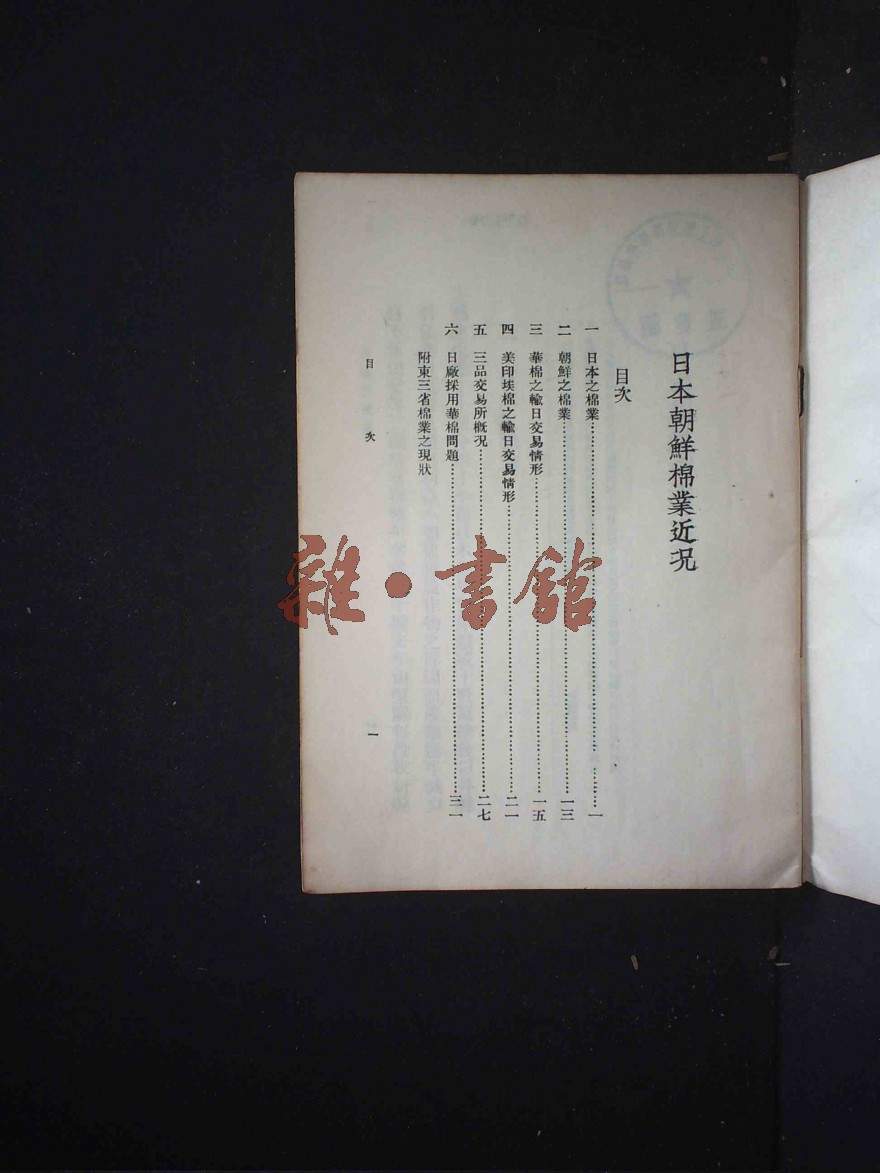 日本朝鮮棉業近况
目次
一 日本之棉業…………一
二 朝鮮之棉業…………一三
三 華棉之輸日交易情形…………一五
四 美印埃棉之輸日交易情形…………二一
五 三品交易所概况…………二七
六 日廠採用華棉問題…………三一
附東三省棉業之現狀
目次 一
雜·書館